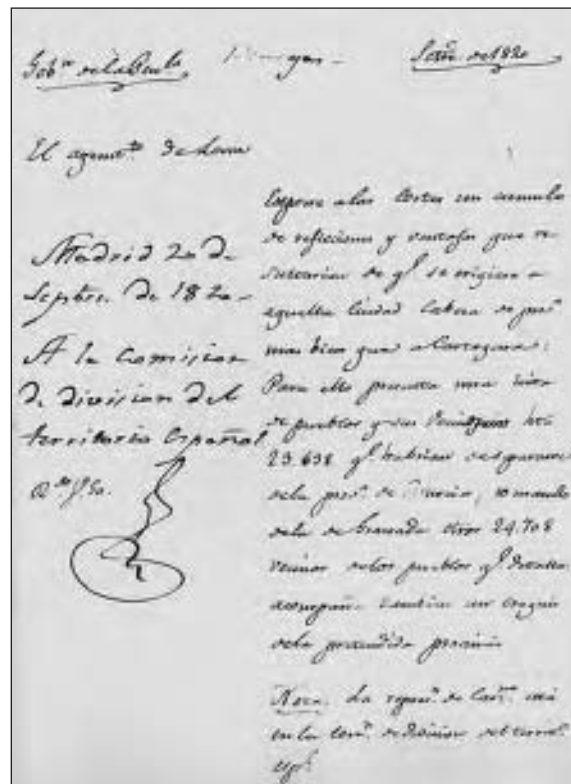 Gobn de la Penla
Setre de 1820
El ayunto de Lorca
Madrid 20 de
Septre. de 1820-
A la Comision
de division del
territorio Español
Expone a las Cortes un cumulo
de reflecciones y ventajas que re-
sultarian de qe se erigiera a
aquella Ciudad Cabeza de prova
mas bien que a Cartagena:
Para ello presenta una lista
de pueblos y sus
23.638 qe habrian de separarse
de la prova de Murcia, tomando
de la de Granada otros 24.708
vecinos de los pueblos qe detalla:
acompaña tambien un croquis
de la pretendida provincia
Nota. La de Carta está
en la Comn de division del territo
espl